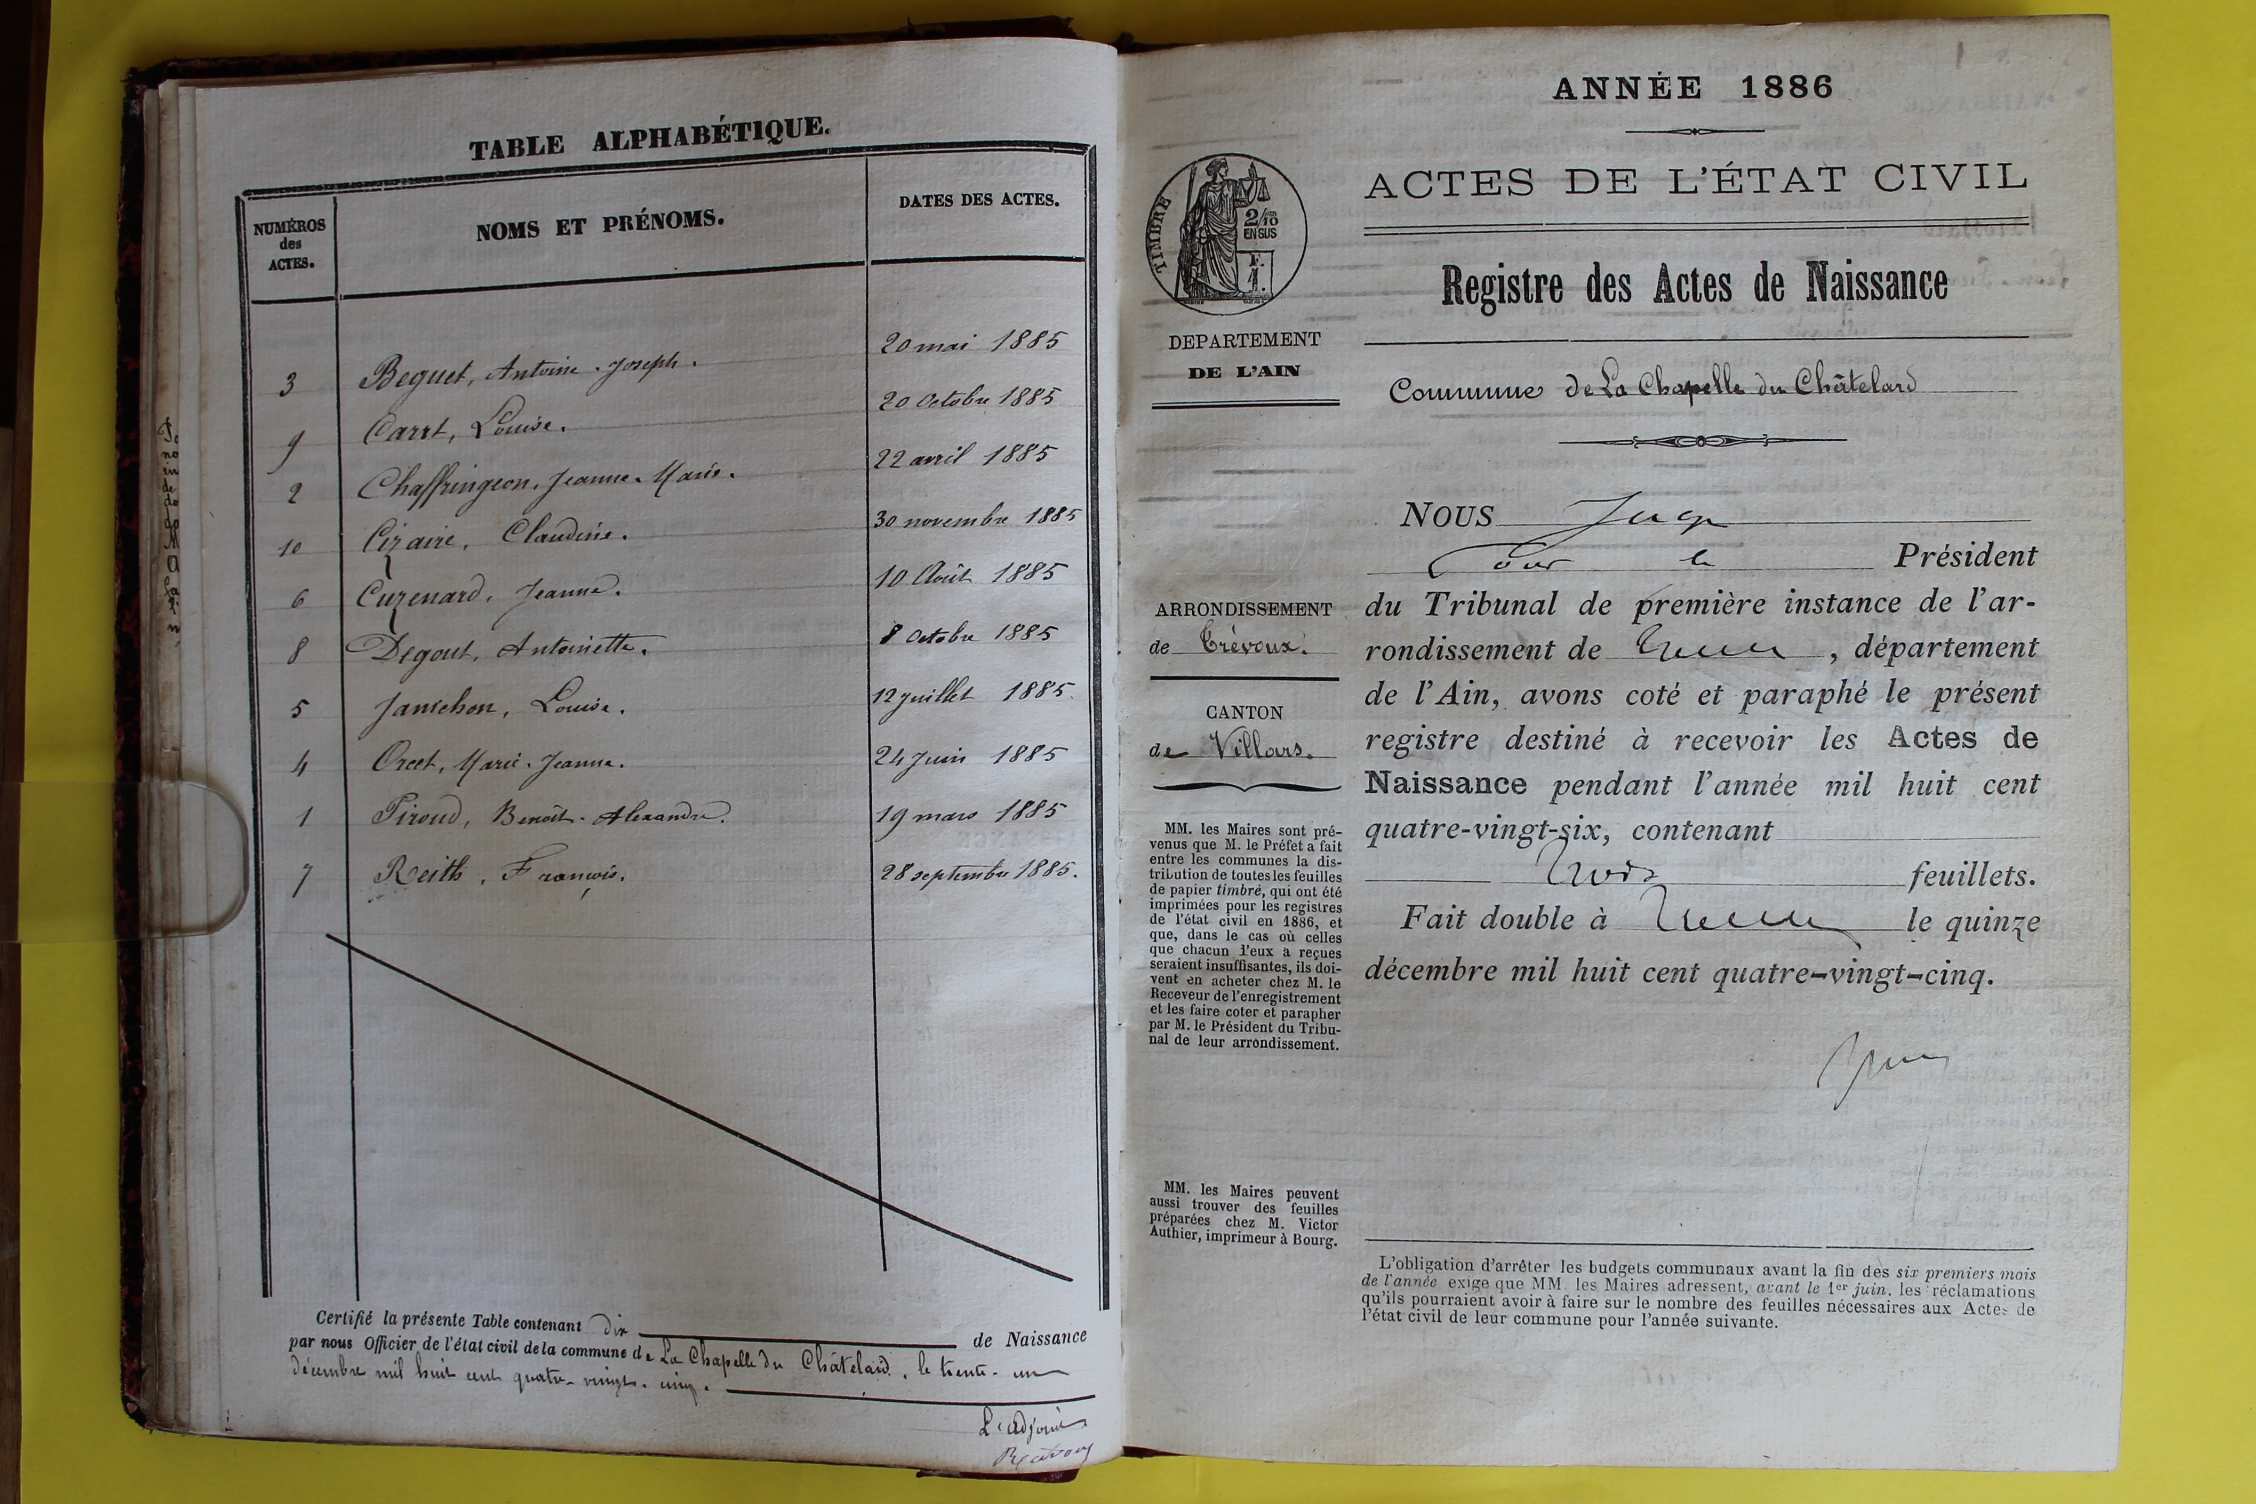 TABLE ALPHABÉTIQUE.
NUMÉROS
des
ACTES.
NOMS ET PRÉNOMS.
DATES DES ACTES.
3 Beguet, Antoine-Joseph. 20 mai 1885
9 Carrt, Louise. 20 Octobre 1885
2 Chaffringeon, Jeanne-Marie. 22 avril 1885
10 Cizaire, Claudine. 30 novembre 1885
6 Cuzenard, Jeanne. 10 Août 1885
8 Degout, Antoinette. 8 Octobre 1885
5 Janichon, Louise. 12 juillet 1885.
4 Orcet, Marie-Jeanne. 24 Juin 1885
1 Piroud, Benoît-Alexandre. 19 mars 1885
7 Reith, François. 28 septembre 1885.
Certifié la présente Table contenant dix de Naissance
par nous Officier de l'état civil de la commune de La Chapelle du Châtelard, le trente-un
décembre mil huit cent quatre-vingt-cinq.
L'adjoint
ANNÉE 1886
ACTES DE L'ÉTAT CIVIL
Registre des Actes de Naissance
Commune de La Chapelle du Châtelard
TIMBRE
2/10
EN SUS
F.
1.
DEPARTEMENT
DE L'AIN
ARRONDISSEMENT
de Trévoux.
CANTON
de Villars.
MM. les Maires sont pré-
venus que M. le Préfet a fait
entre les communes la dis-
tribution de toutes les feuilles
de papier timbré, qui ont été
imprimées pour les registres
de l'état civil en 1886, et
que, dans le cas où celles
que chacun d'eux a reçues
seraient insuffisantes, ils doi-
vent en acheter chez M. le
Receveur de l'enregistrement
et les faire coter et parapher
par M. le Président du Tribu-
nal de leur arrondissement.
MM. les Maires peuvent
aussi trouver des feuilles
préparées chez M. Victor
Authier, imprimeur à Bourg.
NOUS Juge
Pour le Président
du Tribunal de première instance de l'ar-
rondissement de Trévoux, département
de l'Ain, avons coté et paraphé le présent
registre destiné à recevoir les Actes de
Naissance pendant l'année mil huit cent
quatre-vingt-six, contenant
trois feuillets.
Fait double à Trévoux le quinze
décembre mil huit cent quatre-vingt-cinq.
L'obligation d'arrêter les budgets communaux avant la fin des six premiers mois
de l'année exige que MM. les Maires adressent, avant le 1er juin, les réclamations
qu'ils pourraient avoir à faire sur le nombre des feuilles nécessaires aux Actes de
l'état civil de leur commune pour l'année suivante.